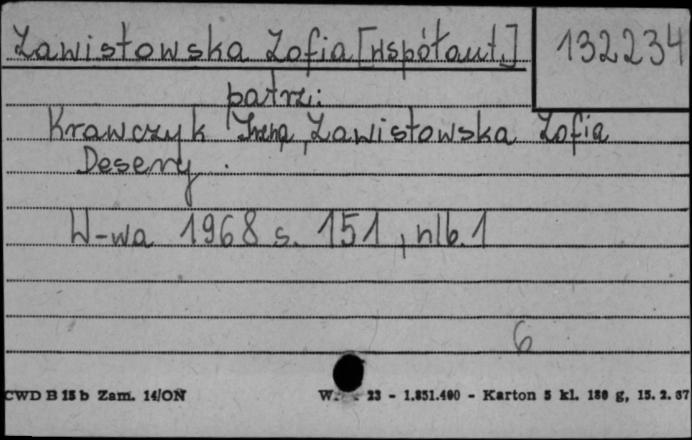 Zawistowska Zofia [współaut.] 132234
patrz:
Krawczyk Irena, Zawistowska Zofia
Desery.
W-wa 1968 s. 151, nlb. 1
6
CWD B 15 b Zam. 14/ON W. 23 - 1.851.400 - Karton 5 kl. 180 g, 15. 2. 67